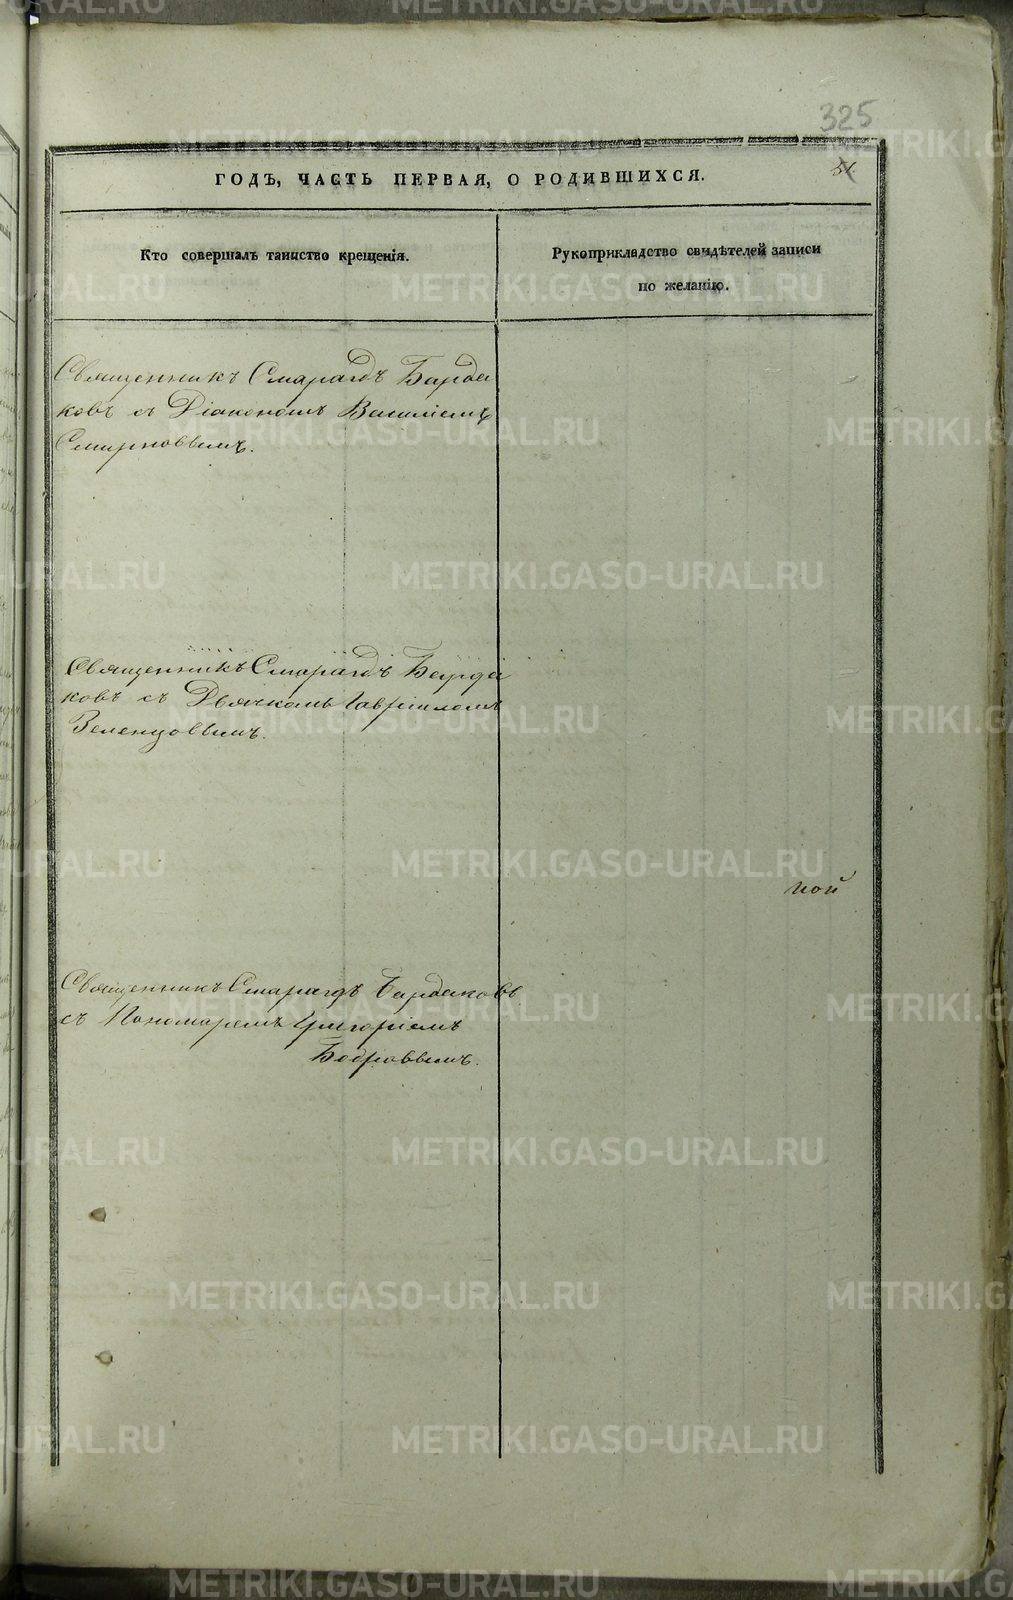 325
51.
ГОДЪ, ЧАСТЬ ПЕРВАЯ, О РОДИВШИХСЯ.
Кто совершалъ таинство крещенія.
Рукоприкладство свидѣтелей записи
по желанію.
Священникъ Смарагдъ Барда
ковъ съ Діакономъ Василіемъ
Смирновымъ.
Священникъ Смарагдъ Барда
ковъ съ Дьячкомъ Гавріиломъ
Зеленцовымъ.
ной
Священникъ Смарагдъ Бардаковъ
съ Пономаремъ Григоріемъ
Бобровымъ.
METRIKI.GASO-URAL.RU